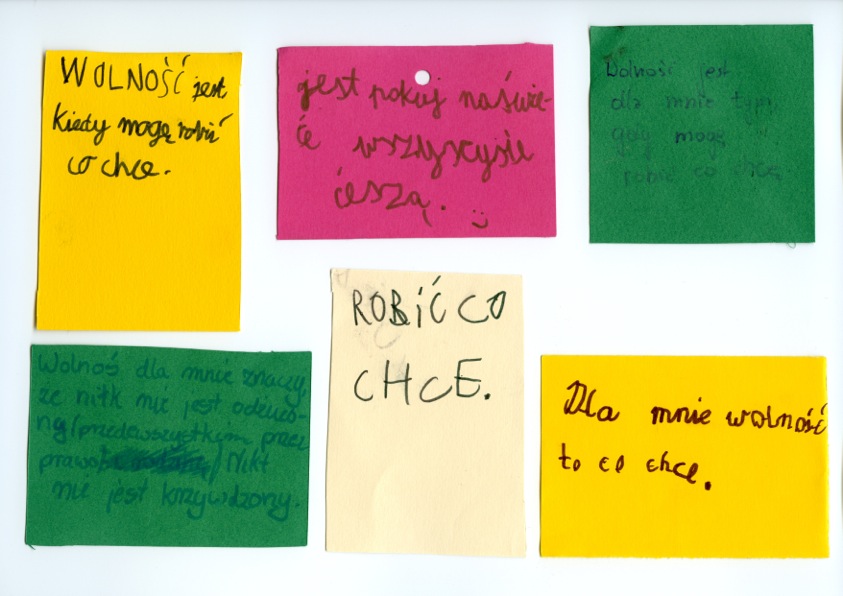 WOLNOŚĆ jest
kiedy mogę robić
co chce.
jest pokuj naświe-
će wszyscysie
ćeszą.
Wolność jest
dla mnie tym,
gdy mogę
robić co chcę
Wolnoś dla mnie znaczy,
że nikt nie jest
ny (przedewszystkim przez
prawo) Nikt
nie jest krzywdzony.
ROBIĆ CO
CHCE.
Dla mnie wolność
to co chcę.